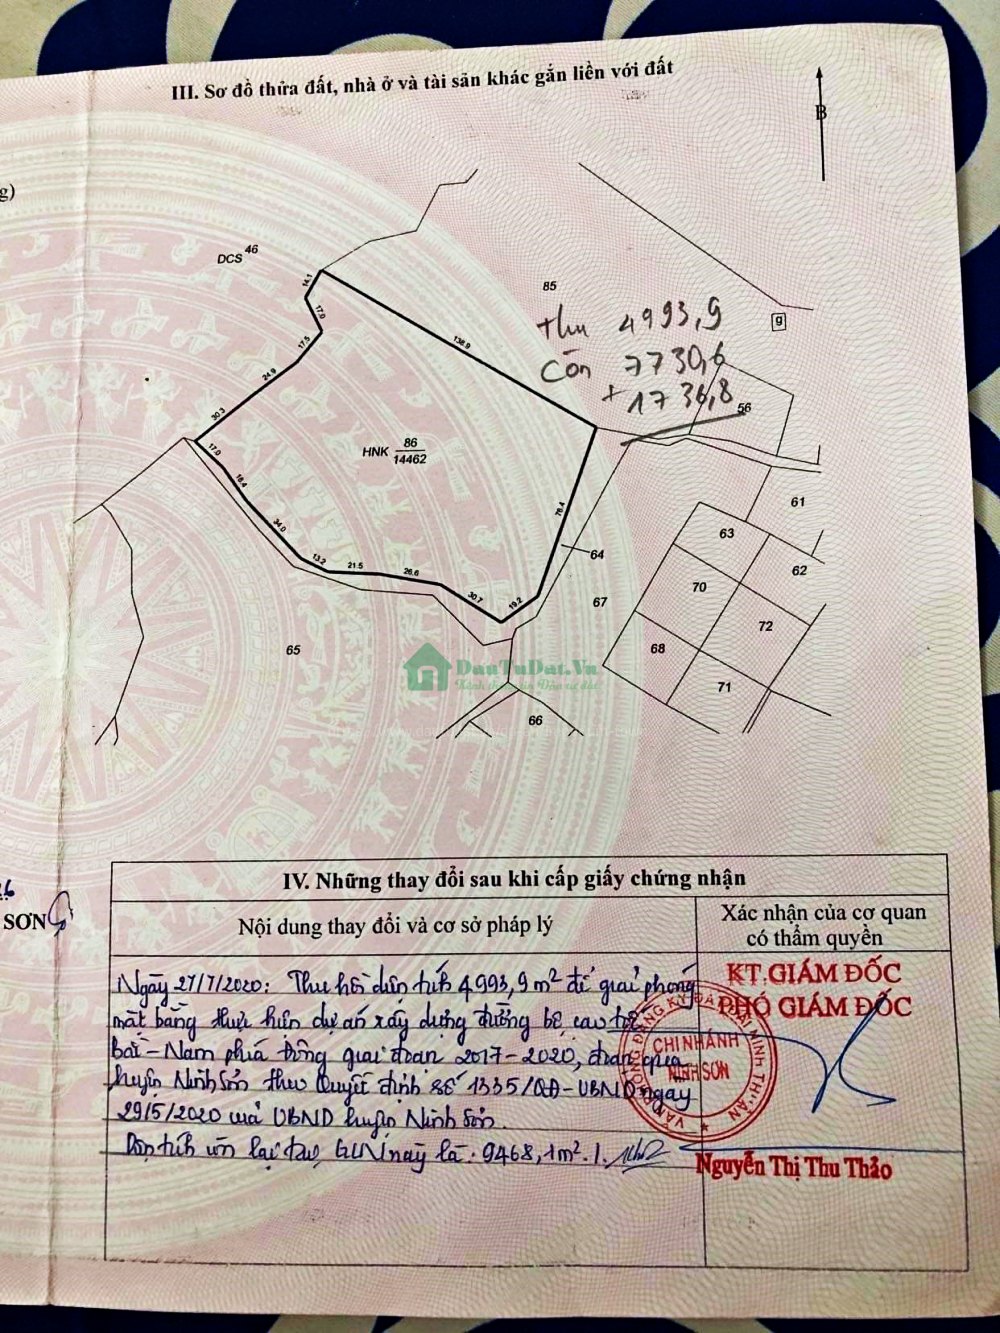 III. Sơ đồ thửa đất, nhà ở và tài sản khác gắn liền với đất
B
g)
DCS 46
85
thu 4993,9
còn 7730,6
+ 1736,8
g
56
14.1
17.0
17.5
24.9
30.3
136.9
HNK 86
14462
17.0
18.4
34.0
13.2
21.5
26.6
30.7
19.2
76.4
61
63
62
64
70
67
72
68
65
71
66
DauTuDat.Vn
IV. Những thay đổi sau khi cấp giấy chứng nhận
SƠN
Nội dung thay đổi và cơ sở pháp lý
Xác nhận của cơ quan
có thẩm quyền
Ngày 27/7/2020: Thu hồi diện tích 4993,9 m² để giải phóng
mặt bằng thực hiện dự án xây dựng đường bộ cao tốc
Bắc - Nam phía Đông giai đoạn 2017-2020, đoạn qua
huyện Ninh Sơn theo Quyết định số 1335/QĐ-UBND ngày
29/5/2020 của UBND huyện Ninh Sơn.
Diện tích còn lại GCN này là: 9468,1 m². /.
KT.GIÁM ĐỐC
PHÓ GIÁM ĐỐC
CHI NHÁNH
NINH SƠN
Nguyễn Thị Thu Thảo